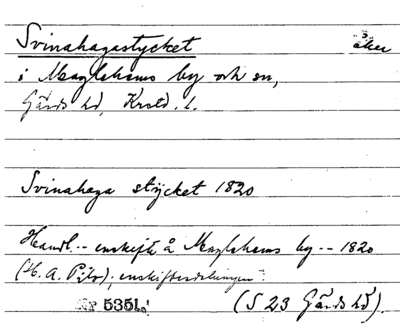 Svinahagastycket åker
i Maglehems by och sn,
Gärds hd, Krstd. l.
Svinahaga stycket 1820
Handl. -- enskifte å Maglehems by -- 1820
(H. A. Pihl); enskiftesdelningen
Nr 5351.
(S 23 Gärds hd).